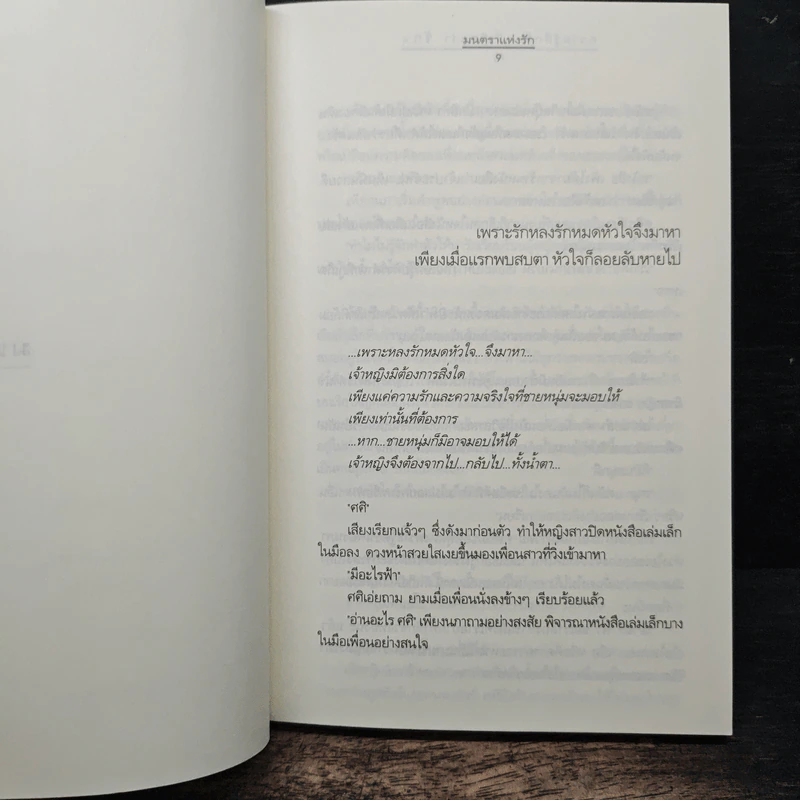 มนตราแห่งรัก
9
เพราะรักหลงรักหมดหัวใจจึงมาหา
เพียงเมื่อแรกพบสบตา หัวใจก็ลอยลับหายไป
...เพราะหลงรักหมดหัวใจ...จึงมาหา...
เจ้าหญิงมิต้องการสิ่งใด
เพียงแค่ความรักและความจริงใจที่ชายหนุ่มจะมอบให้
เพียงเท่านั้นที่ต้องการ
...หาก...ชายหนุ่มก็มิอาจมอบให้ได้
เจ้าหญิงจึงต้องจากไป...กลับไป...ทั้งน้ำตา...
"ศศิ"
เสียงเรียกแจ้วๆ ซึ่งดังมาก่อนตัว ทำให้หญิงสาวปิดหนังสือเล่มเล็ก
ในมือลง ดวงหน้าสวยใสเงยขึ้นมองเพื่อนสาวที่วิ่งเข้ามาหา
"มีอะไรฟ้า"
ศศิเอ่ยถาม ยามเมื่อเพื่อนนั่งลงข้างๆ เรียบร้อยแล้ว
"อ่านอะไร ศศิ" เพียงนภาถามอย่างสงสัย พิจารณาหนังสือเล่มเล็กบาง
ในมือเพื่อนอย่างสนใจ